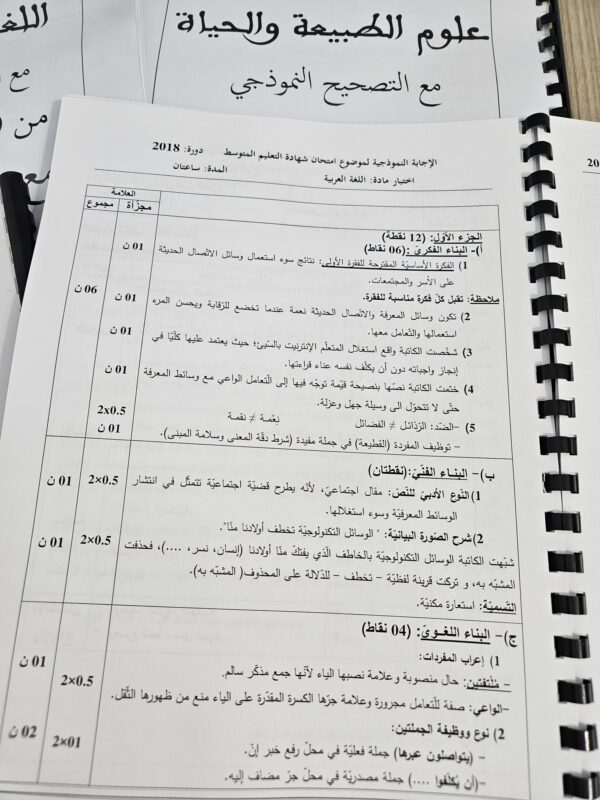 علوم الطبيعة والحياة
مع التصحيح النموذجي
اللغ
مع
من
مع
20
الإجابة النموذجية لموضوع امتحان شهادة التعليم المتوسط دورة: 2018
اختبار مادة: اللغة العربية المدة: ساعتان
العلامة
مجزّأة مجموع
الجزء الأوّل: (12 نقطة)
أ)- البناء الفكريّ: (06 نقاط)
1) الفكرة الأساسيّة المقترحة للفقرة الأولى: نتائج سوء استعمال وسائل الاتّصال الحديثة 01 ن
على الأسر والمجتمعات.
ملاحظة: تقبل كلّ فكرة مناسبة للفقرة.
2) تكون وسائل المعرفة والاتّصال الحديثة نعمة عندما تخضع للرّقابة ويحسن المرء 01 ن 06 ن
استعمالها والتّعامل معها.
3) شخّصت الكاتبة واقع استغلال المتعلّم الإنترنيت بالسّيئ؛ حيث يعتمد عليها كلّيّا في 01 ن
إنجاز واجباته دون أن يكلّف نفسه عناء قراءتها.
4) ختمت الكاتبة نصّها بنصيحة قيّمة توجّه فيها إلى التّعامل الواعي مع وسائط المعرفة 01 ن
حتّى لا تتحوّل الى وسيلة جهل وعزلة.
5) –الضّد: الرّذائل ≠ الفضائل نِعْمة ≠ نقمة 2x0.5
– توظيف المفردة (القطيعة) في جملة مفيدة (شرط دقّة المعنى وسلامة المبنى). 01 ن
ب)- البناء الفنّيّ:(نقطتان)
1) النّوع الأدبيّ للنّصّ: مقال اجتماعيّ، لأنّه يطرح قضيّة اجتماعيّة تتمثّل في انتشار 2×0.5 01 ن
الوسائط المعرفيّة وسوء استغلالها.
2) شرح الصّورة البيانيّة: " الوسائل التكنولوجيّة تخطف أولادنا منّا".
شبّهت الكاتبة الوسائل التكنولوجيّة بالخاطف الّذي يفتكّ منّا أولادنا (إنسان، نسر، ....)، فحذفت 2×0.5 01 ن
المشبّه به، و تركت قرينة لفظيّة – تخطف – للدّلالة على المحذوف( المشبّه به).
التّسميّة: استعارة مكنيّة.
ج)- البناء اللغـويّ: (04 نقاط)
1) إعراب المفردات:
– مُلتفتين: حال منصوبة وعلامة نصبها الياء لأنّها جمع مذكّر سالم. 01 ن
–الواعي: صفة للّتعامل مجرورة وعلامة جرّها الكسرة المقدّرة على الياء منع من ظهورها الثّقل. 2×0.5
2) نوع ووظيفة الجملتين:
– (يتواصلون عبرها) جملة فعليّة في محلّ رفع خبر إنّ. 2×01 02 ن
–(أن يُكلّفوا ....) جملة مصدريّة في محلّ جرّ مضاف إليه.